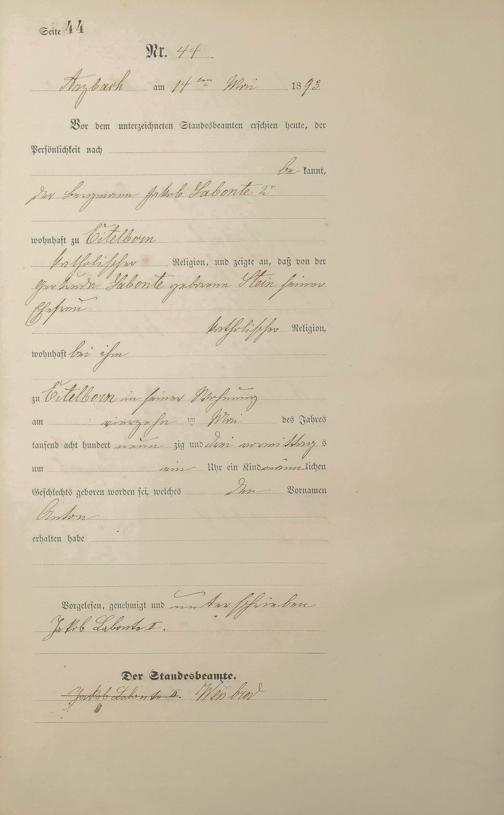 Seite 44
Nr. 44
Arzbach am 14ten Mai 1893
Vor dem unterzeichneten Standesbeamten erschien heute, der
Persönlichkeit nach
be kannt,
der Bergmann Jakob Labonte 2r
wohnhaft zu Eitelborn
katholischer Religion, und zeigte an, daß von der
Gertruda Labonte geborene Stein seiner
Ehefrau
katholischer Religion,
wohnhaft bei ihm
zu Eitelborn in seiner Wohnung
am vierzehn ten Mai des Jahres
tausend acht hundert neun zig und drei vormittag s
um ein Uhr ein Kind männ lichen
Geschlechts geboren worden sei, welches den Vornamen
Anton
erhalten habe
Vorgelesen, genehmigt und unterschrieben
Jakob Labonte II.
Der Standesbeamte.
Jakob Labonte II.